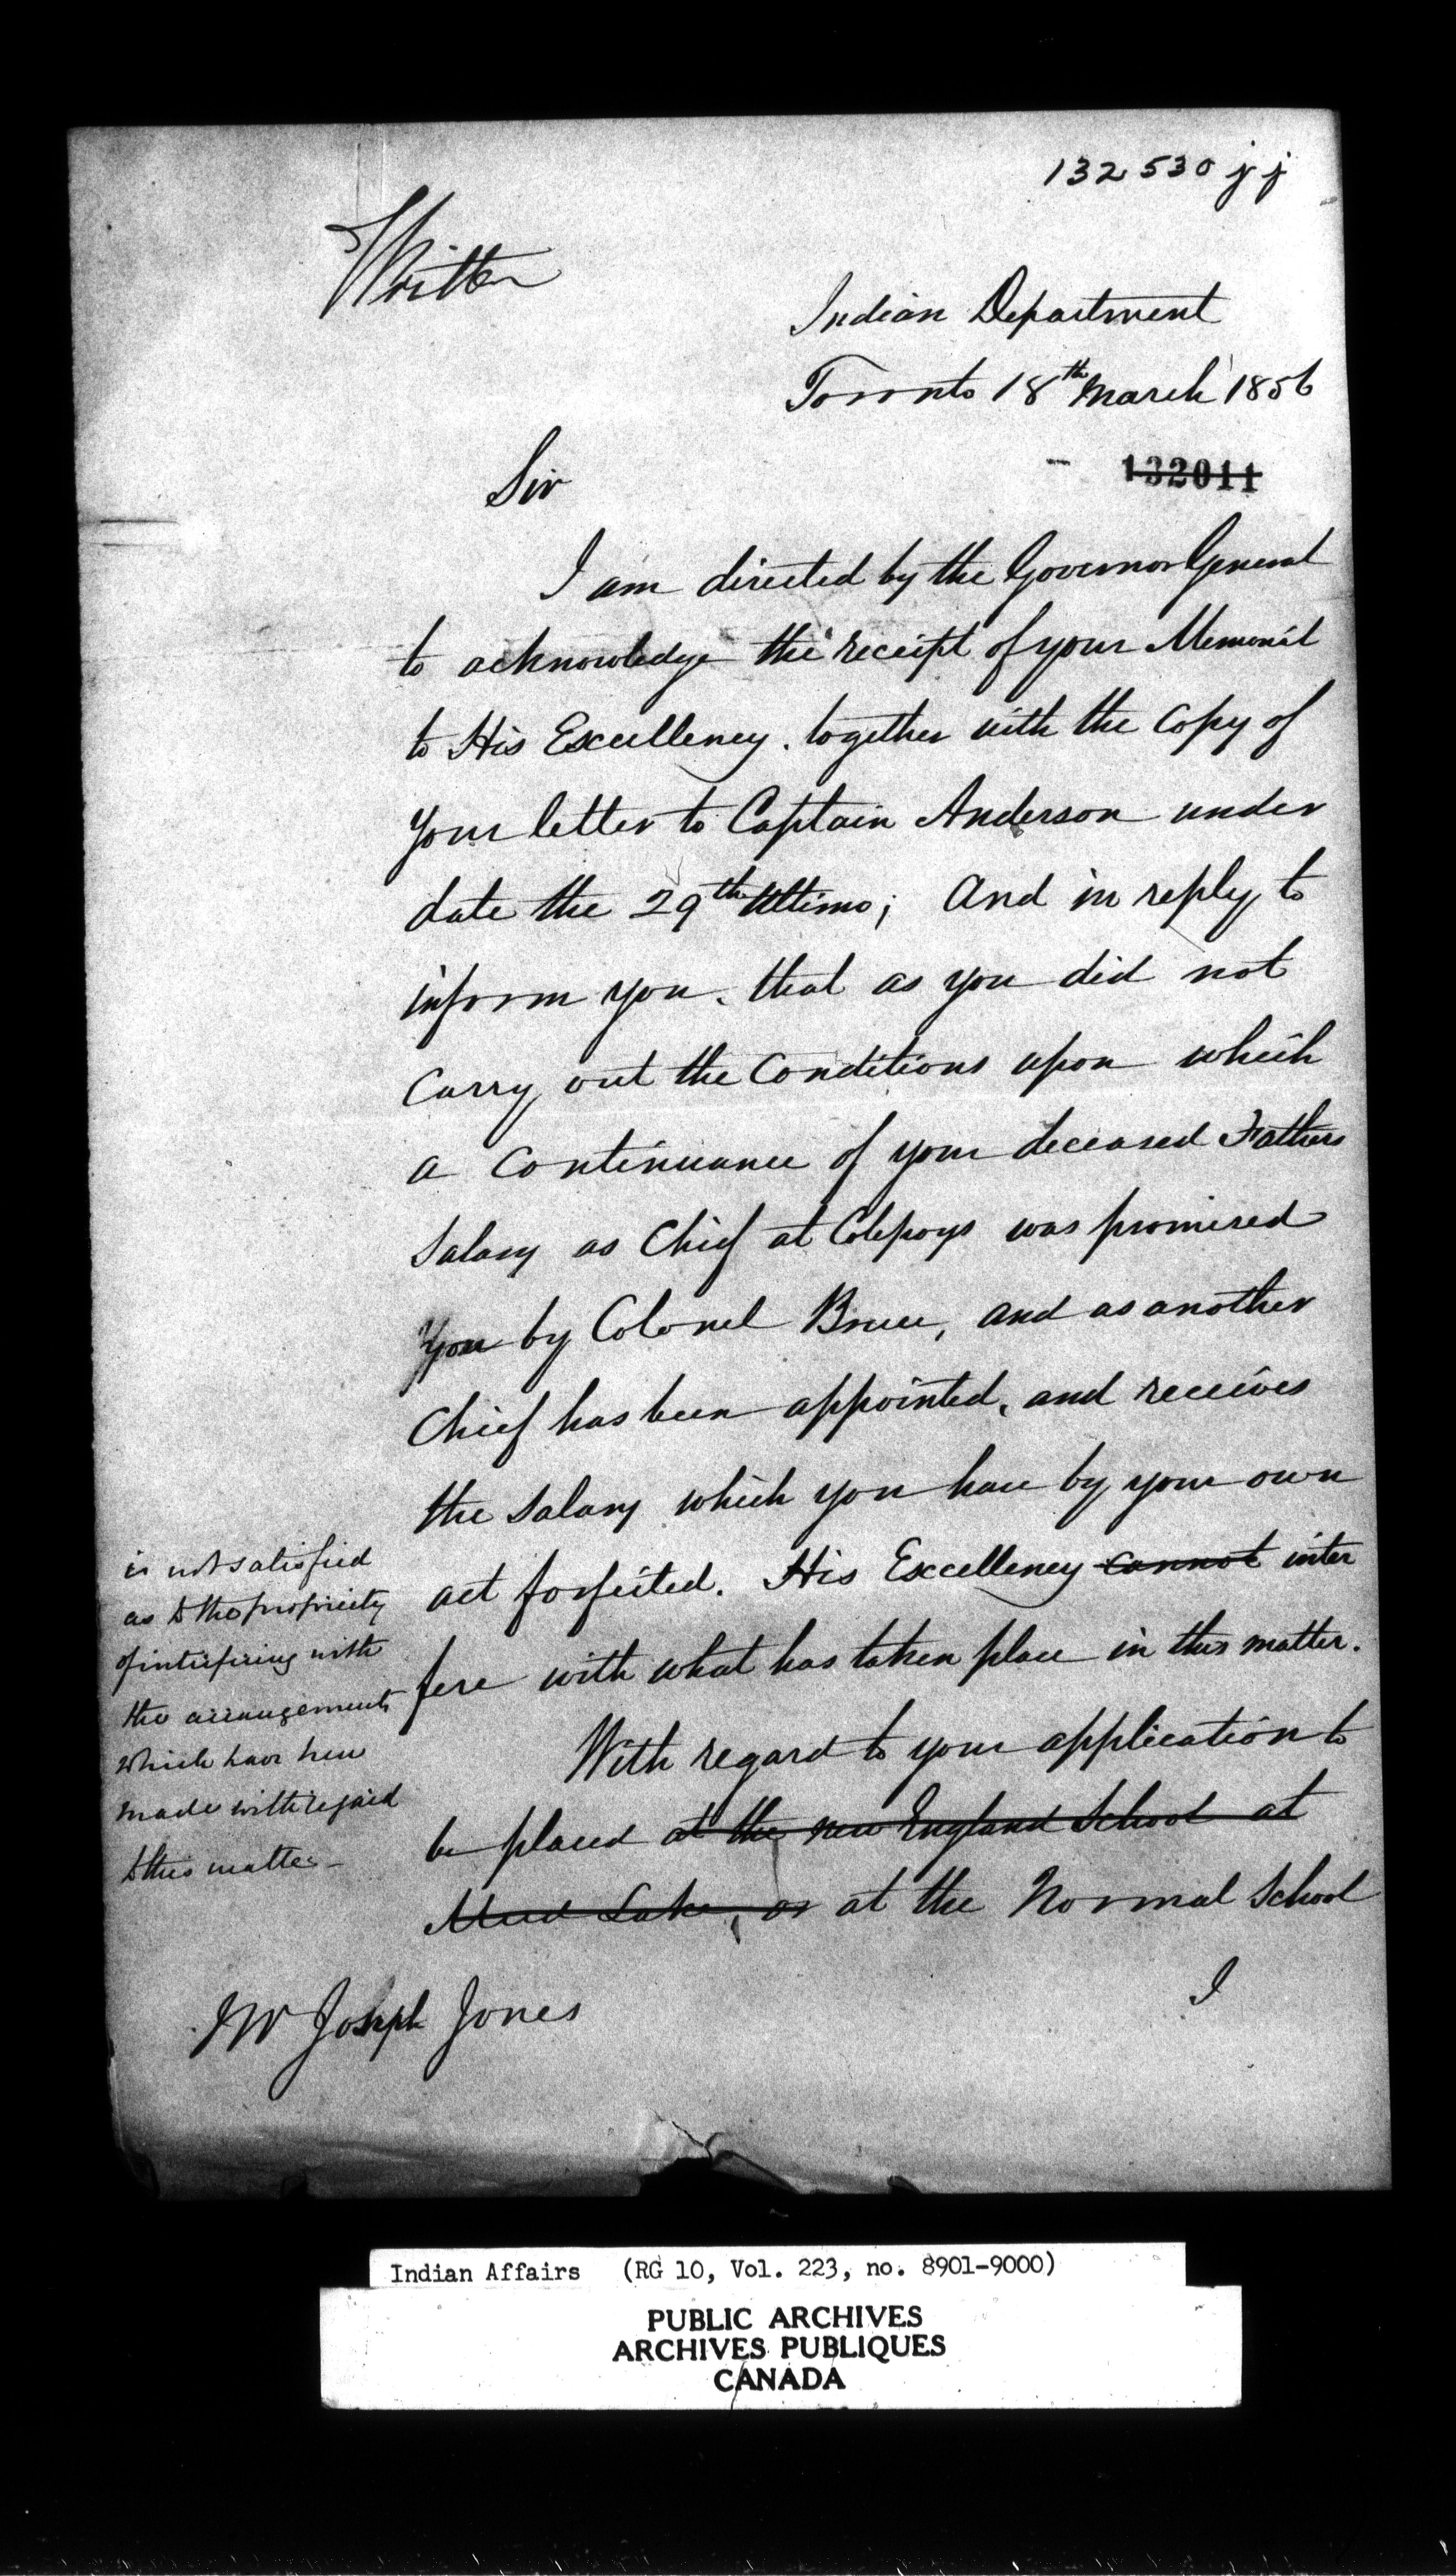 132530 jj
Written
Indian Department
Toronto 18th March 1856
132011
Sir
I am directed by the Governor General
to acknowledge the receipt of your Memorial
to His Excellency. together with the Copy of
your letter to Captain Anderson under
date the 29th Ultimo; And in reply to
inform you. that as you did not
Carry out the Conditions upon which
a Continuance of your deceased Fathers
Salary as Chief at Colpoys was promised
you by Colonel Bruce, and as another
Chief has been appointed, and receives
the Salary which you have by your own
act forfeited. His Excellency cannot inter
fere with what has taken place in this matter.
is not satisfied
as to the propriety
of interfering with
the arrangements
which have been
made with regard
to this matter -
With regard to your application to
be placed at the New England School at
Mud Lake, or at the Normal School
I
Mr Joseph Jones
Indian Affairs (RG 10, Vol. 223, no. 8901-9000)
PUBLIC ARCHIVES
ARCHIVES PUBLIQUES
CANADA